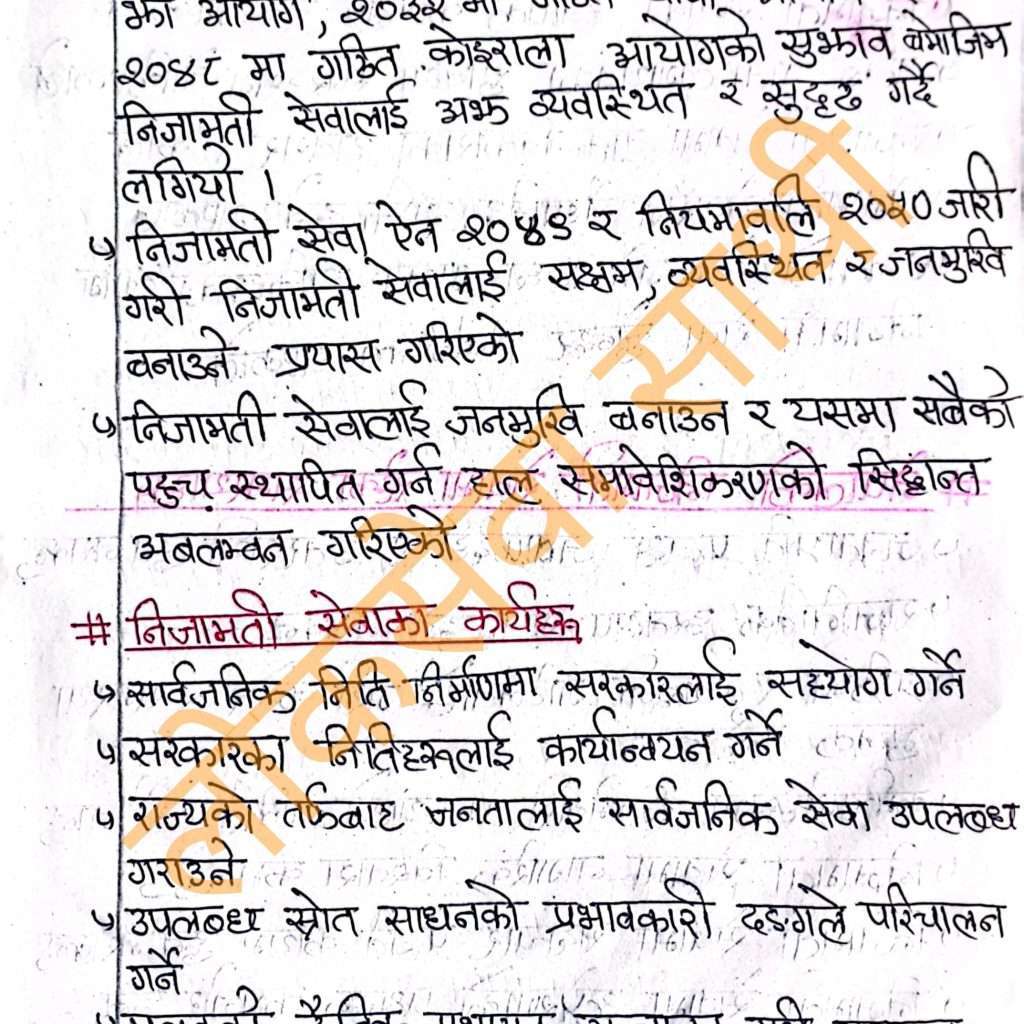 झा आयोग, २०३२ मा
२०४८ मा गठित कोइराला आयोगको सुझाव बमोजिम
निजामती सेवालाई अझ व्यवस्थित र सुदृढ गर्दै
लगियो ।
निजामती सेवा ऐन २०४९ र नियमावलि २०५० जारी
गरी निजामती सेवालाई सक्षम, व्यवस्थित र जनमुखि
बनाउने प्रयास गरिएको
निजामती सेवालाई जनमुखि बनाउन र यसमा सबैको
पहुच स्थापित गर्न हाल समावेशिकरणको सिद्धान्त
अबलम्बन गरिएको
# निजामती सेवाका कार्यहरू
सार्वजनिक निति निर्माणमा सरकारलाई सहयोग गर्ने
सरकारका नितिहरूलाई कार्यान्वयन गर्ने
राज्यको तर्फबाट जनतालाई सार्वजनिक सेवा उपलब्ध
गराउने
उपलब्ध स्रोत साधनको प्रभावकारी ढङ्गले परिचालन
गर्ने
लोकसेवा साथी